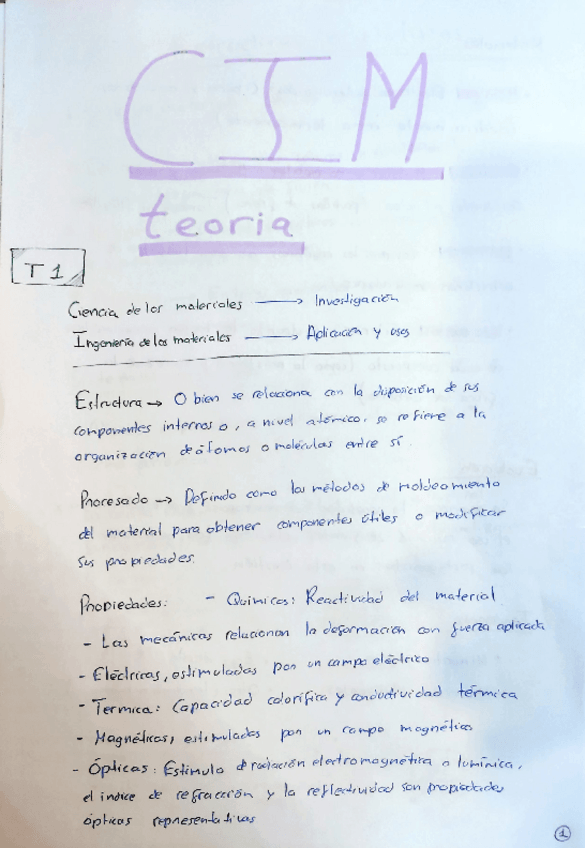 CIM
teoria
T1
Ciencia de los materiales → Investigación
Ingeniería de los materiales → Aplicación y usos
Estructura → O bien se relaciona con la disposición de sus
componentes internos o, a nivel atómico, se refiere a la
organización de átomos o moléculas entre sí.
Procesado → Definido como los métodos de moldeamiento
del material para obtener componentes útiles o modificar
sus propiedades.
Propiedades: - Químicas: Reactividad del material
- Las mecánicas relacionan la deformación con fuerza aplicada
- Eléctricas, estimuladas por un campo eléctrico
- Termica: Capacidad calorífica y conductividad térmica
- Magnéticas, estimuladas por un campo magnético
- Ópticas: Estimulo de radiación electromagnética o lumínica,
el indice de refracción y la reflectividad son propiedades
ópticas representativas
1